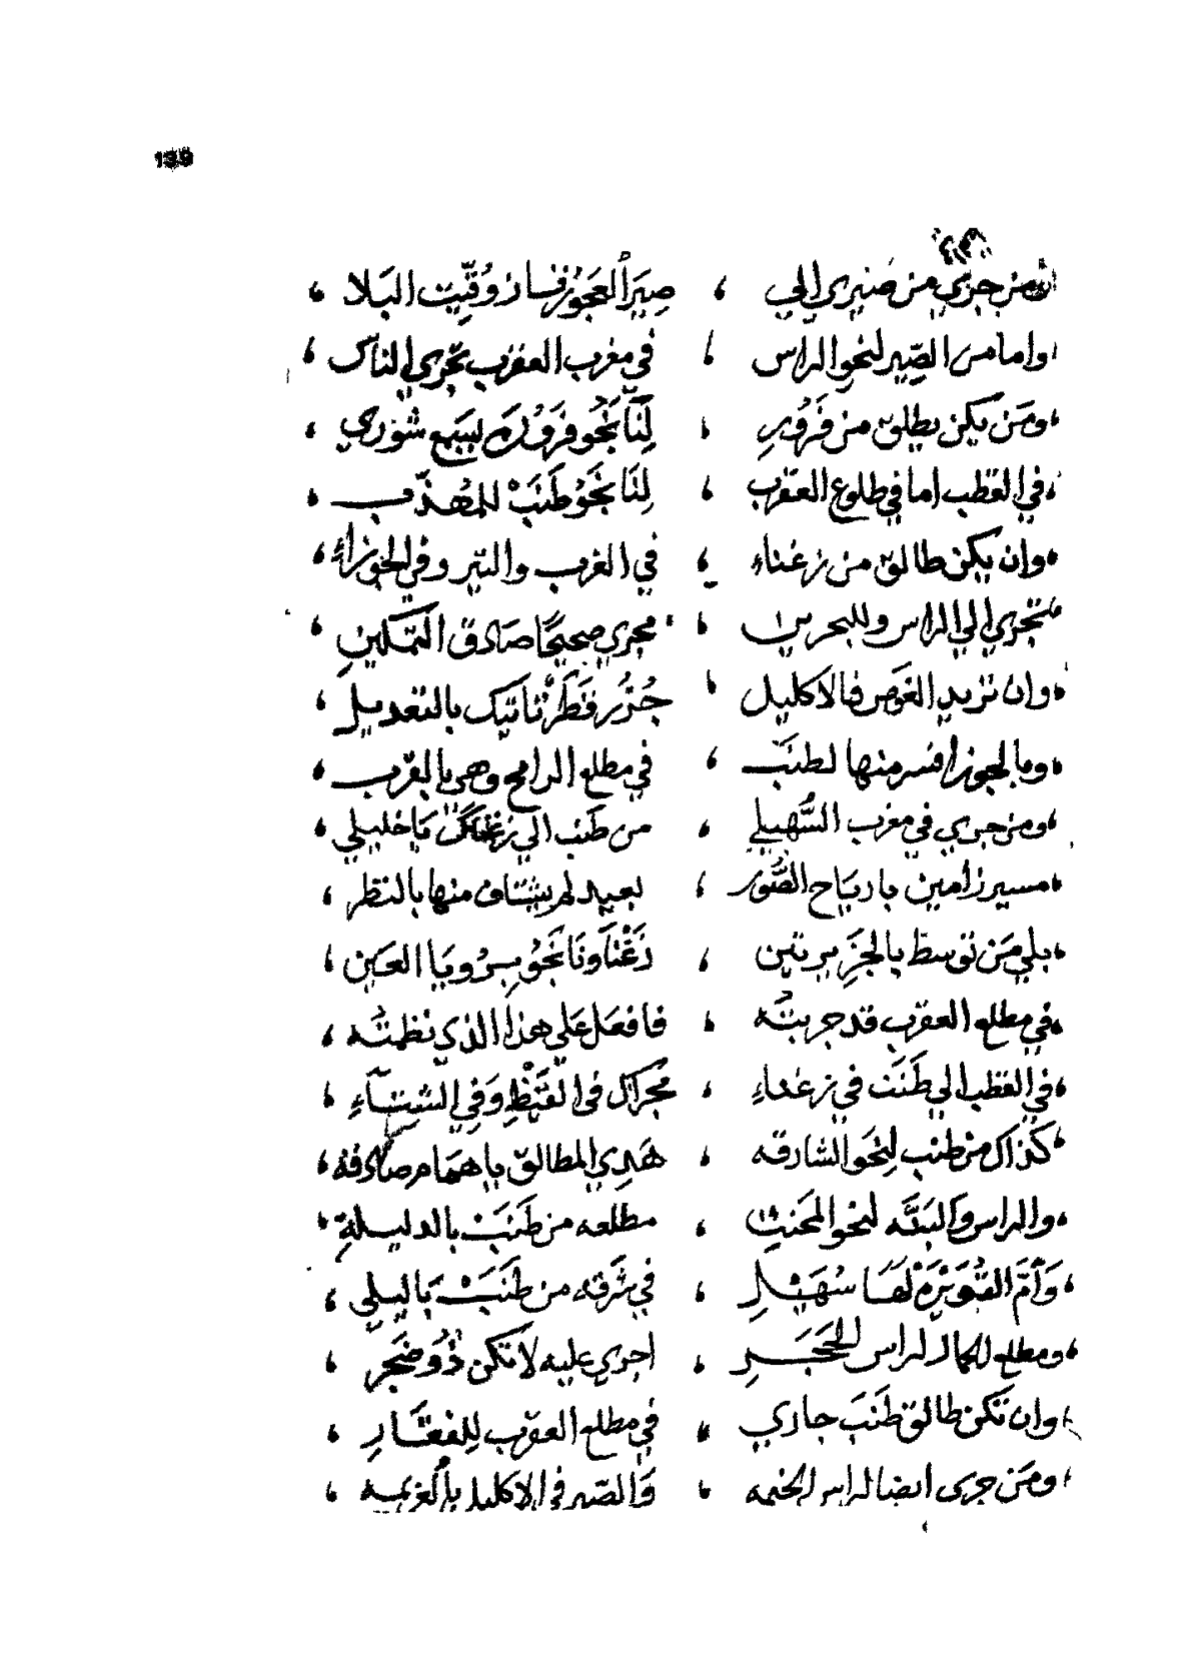 139
من جري من صنيري الي ، صير العجوز فسار وقيت البلا ،
واما من الصير لنحو الراس ، في مغرب العقرب تجري الناس ،
ومن يكن يطلق من فرور ، لنا نحو فرور سمع شوري ،
في القطب اما في طلوع العقرب ، لنا نحو طنب للمهذب ،
وان يكن طالق من زغناء ، في الغرب والتير وفي الجوزاء ،
تجري الي الراس وللبحرين ، مجري صحيحًا صادق التمكين ،
وان تريد الغوص فالاكليل ، جزر فطر ناتيك بالتعديل ،
وبالجوزا فسر منها لطنب ، في مطلع الرامح وهي بالقرب ،
ومن جري في مغرب السهيلي ، من طنب الي يا خليلي ،
مسير زامين بارياح الصور ، بعيد لم يشتاف منها بالنظر ،
بلي من توسط بالجزيرتين ، زغنا ونا نحو سرو يا العين ،
في مطلع العقرب قد جربته ، فافعل علي هذا الذي نظمته ،
في القطب الي طنب في زغناء ، مجراك في القيظ وفي الشتاء ،
كذاك من طنب لنحو الشارقه ، هذي المطالق يا همام صادقه ،
والراس والبنه لنحو المحنث ، مطلعه من طنب بالدليلة
وام القويزه لها سهيل ، في شرقه من طنب باليلي ،
ومطلع الحمار لراس الحجر ، اجري عليه لا تكن ذو ضجر ،
وان تكن طالق طنب جاري ، في مطلع العقرب للفقار ،
ومن جري ايضا لراس الخيمه ، والصير في الاكليل بالغزيمه ،